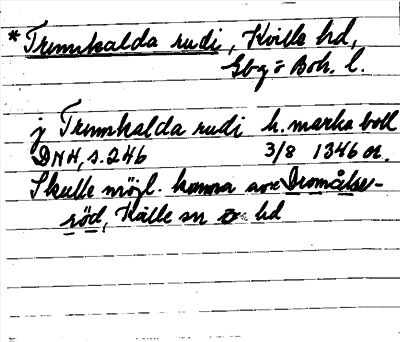 * Trumkalda rudi, Kville hd,
Gbg o Boh. l.
j Trumkalda rudi h. marka boll
DNH, s. 246 3/8 1346 or.
Skulle möjl. kunna avse Dromålse-
röd, Kville sn o hd